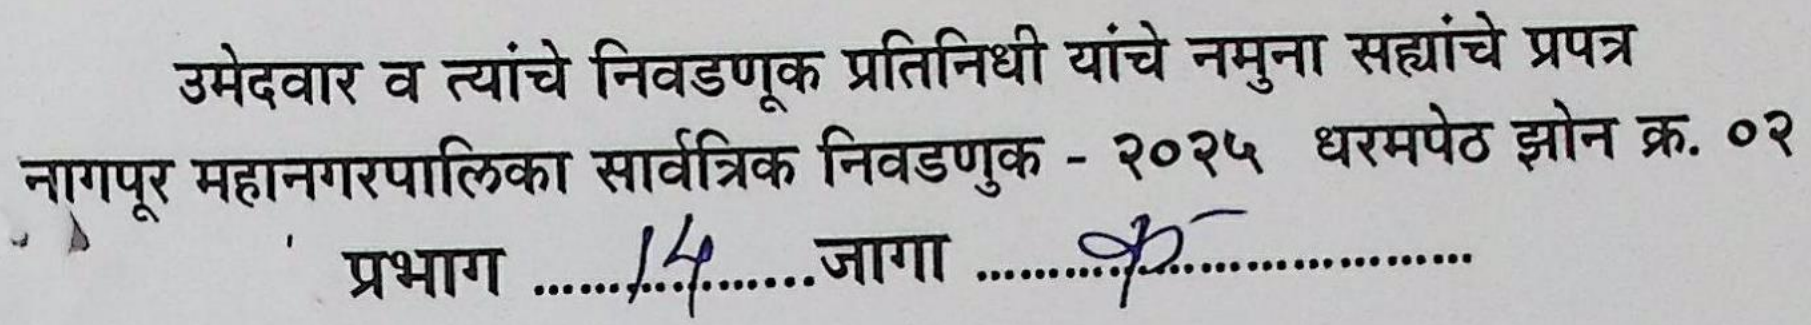 उमेदवार व त्यांचे निवडणूक प्रतिनिधी यांचे नमुना सह्यांचे प्रपत्र
नागपूर महानगरपालिका सार्वत्रिक निवडणुक - २०२५ धरमपेठ झोन क्र. ०२
प्रभाग ......14.......जागा ........क.................